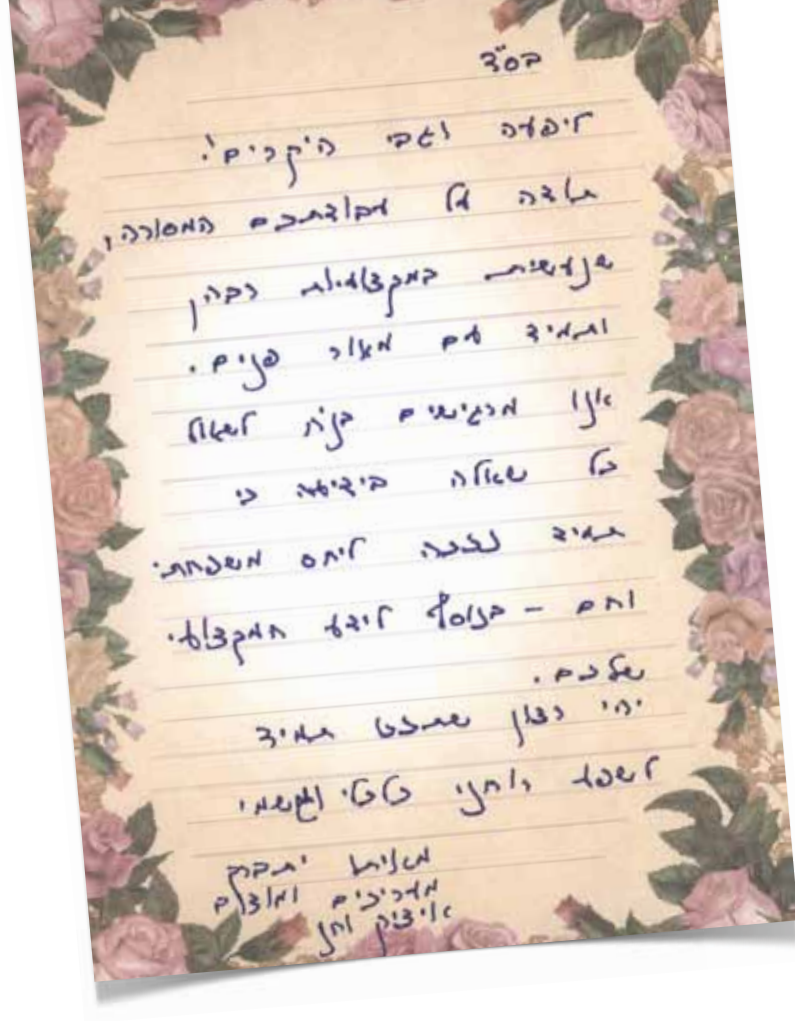 בס"ד
ליפעה וגבי היקרים!
תודה על עבודתכם המסורה,
שנעשית במקצועיות רבה
ותמיד עם מאור פנים.
אנו מרגישים בנח לשאול
כל שאלה בידיעה כי
תמיד נזכה ליחס משפחתי
וחם - בנוסף לידע המקצועי
שלכם.
יהי רצון שתזכו תמיד
לשפע רוחני כללי וגשמי
מאיתו יתברך
מעריכים ומודים
איציק וחן